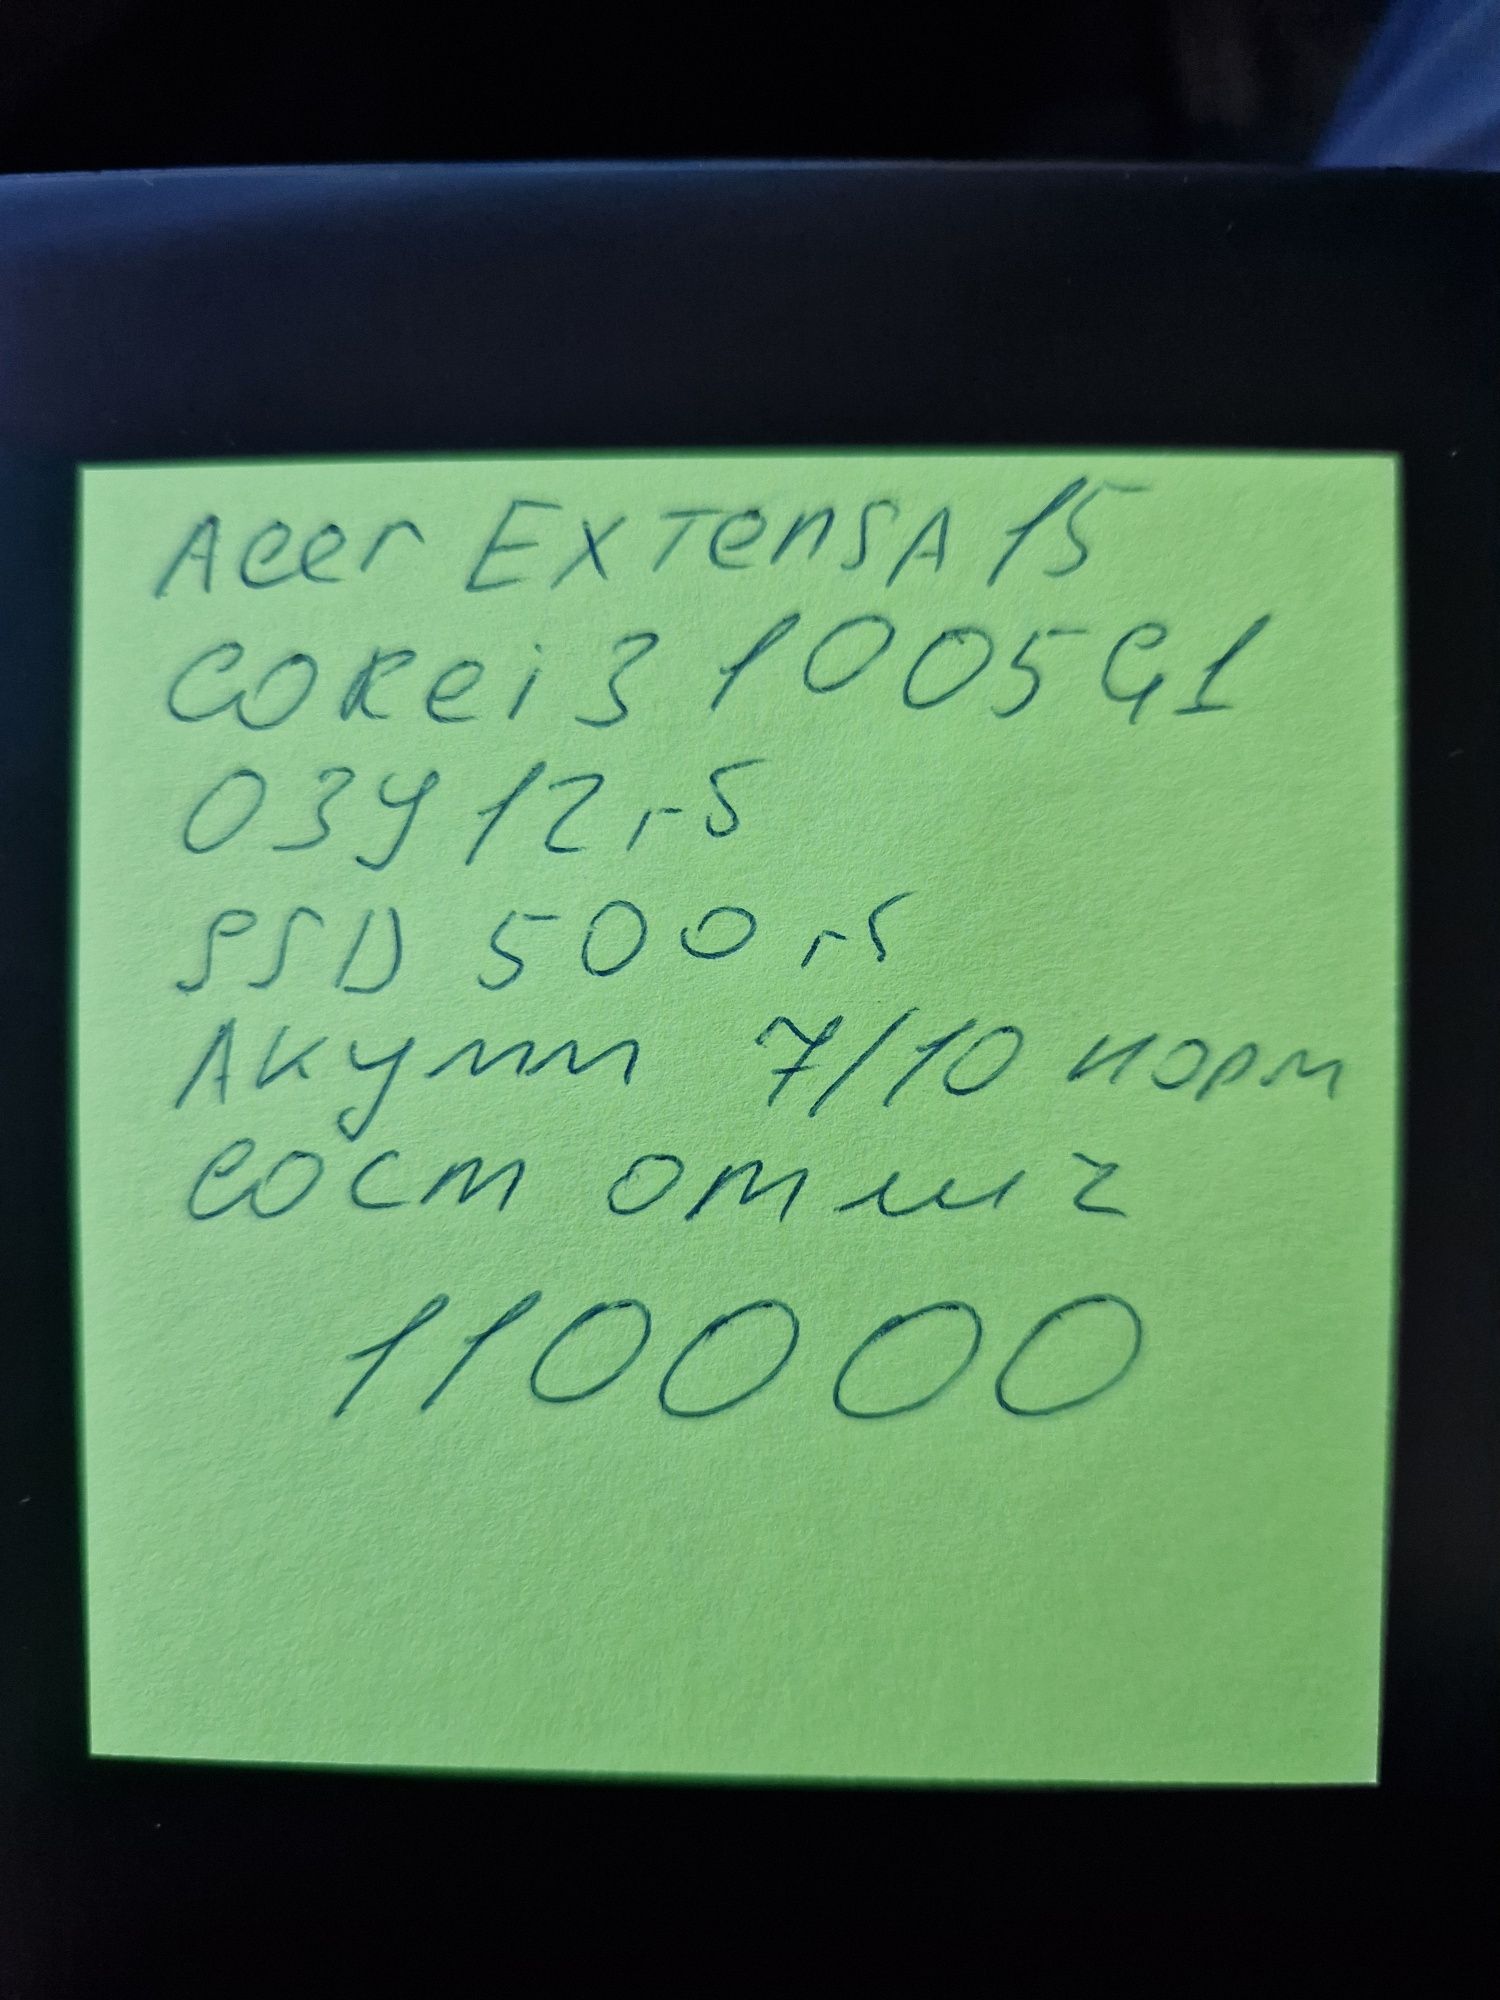 Acer ExTensA 15
CORei3 1005G1
ОЗУ 12 гб
SSD 500 гб
Акумм 7/10 норм
сост отлич
110000